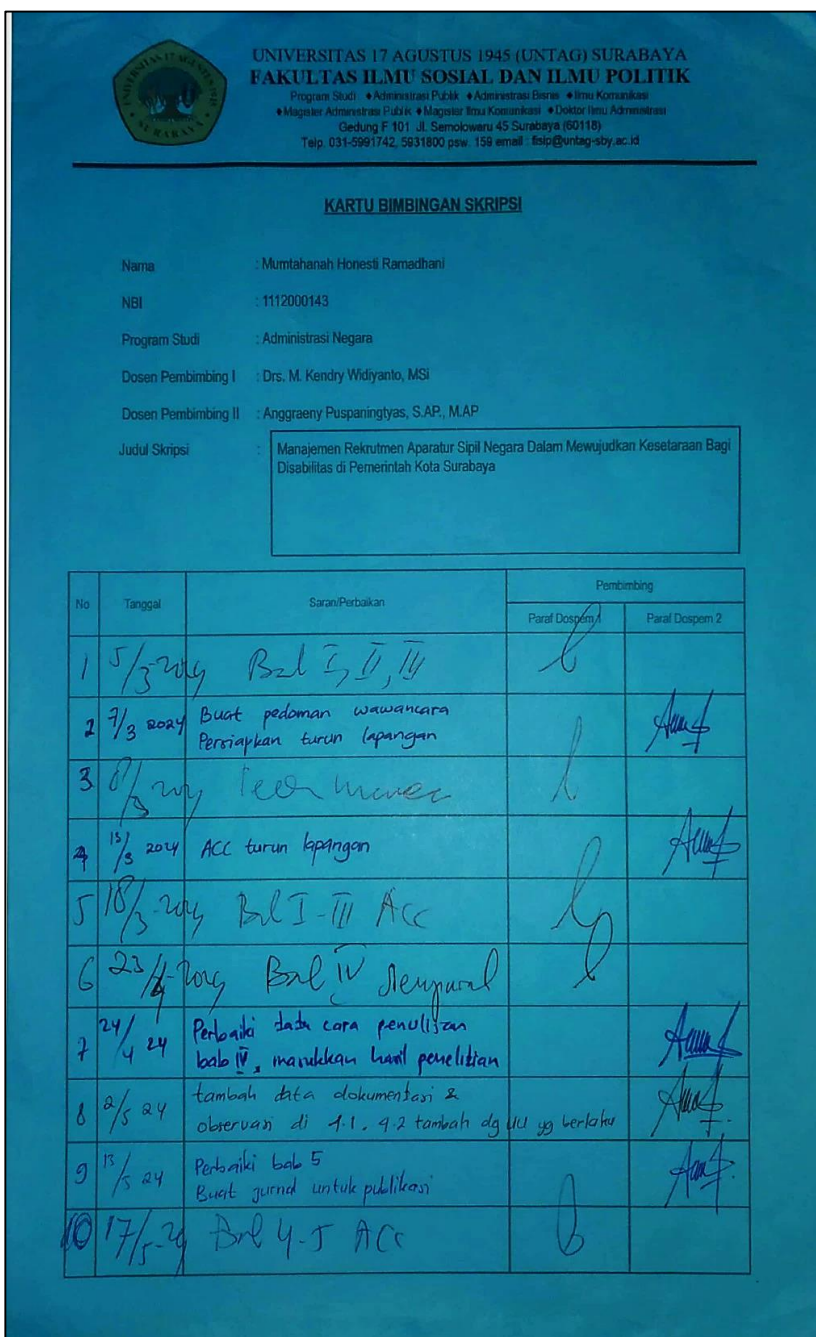 UNIVERSITAS 17 AGUSTUS 1945
SURABAYA
UNIVERSITAS 17 AGUSTUS 1945 (UNTAG) SURABAYA
FAKULTAS ILMU SOSIAL DAN ILMU POLITIK
Program Studi ♦Administrasi Publik ♦Administrasi Bisnis ♦Ilmu Komunikasi
♦Magister Administrasi Publik ♦Magister Ilmu Komunikasi ♦Doktor Ilmu Administrasi
Gedung F 101 Jl. Semolowaru 45 Surabaya (60118)
Telp. 031-5991742, 5931800 psw. 159 email : fisip@untag-sby.ac.id
KARTU BIMBINGAN SKRIPSI
Nama : Mumtahanah Honesti Ramadhani
NBI : 1112000143
Program Studi : Administrasi Negara
Dosen Pembimbing I : Drs. M. Kendry Widiyanto, MSi
Dosen Pembimbing II : Anggraeny Puspaningtyas, S.AP., M.AP
Judul Skripsi : Manajemen Rekrutmen Aparatur Sipil Negara Dalam Mewujudkan Kesetaraan Bagi
Disabilitas di Pemerintah Kota Surabaya
No Tanggal Saran/Perbaikan Pembimbing
Paraf Dospem 1 Paraf Dospem 2
1 5/3-2024 Bab I, II, III
2 7/3 2024 Buat pedoman wawancara
Persiapkan turun lapangan
3
4 13/3 2024 ACC turun lapangan
5 18/3-2024 Bab I-III Acc
6 23/4-2024 Bab IV
7 24/4 24 Perbaiki data cara penulisan
bab IV, masukkan hasil penelitian
8 2/5 24 tambah data dokumentasi &
observasi di 4.1, 4.2 tambah dg UU yg berlaku
9 13/5 24 Perbaiki bab 5
Buat jurnal untuk publikasi
10 17/5-24 Bab 4-5 Acc